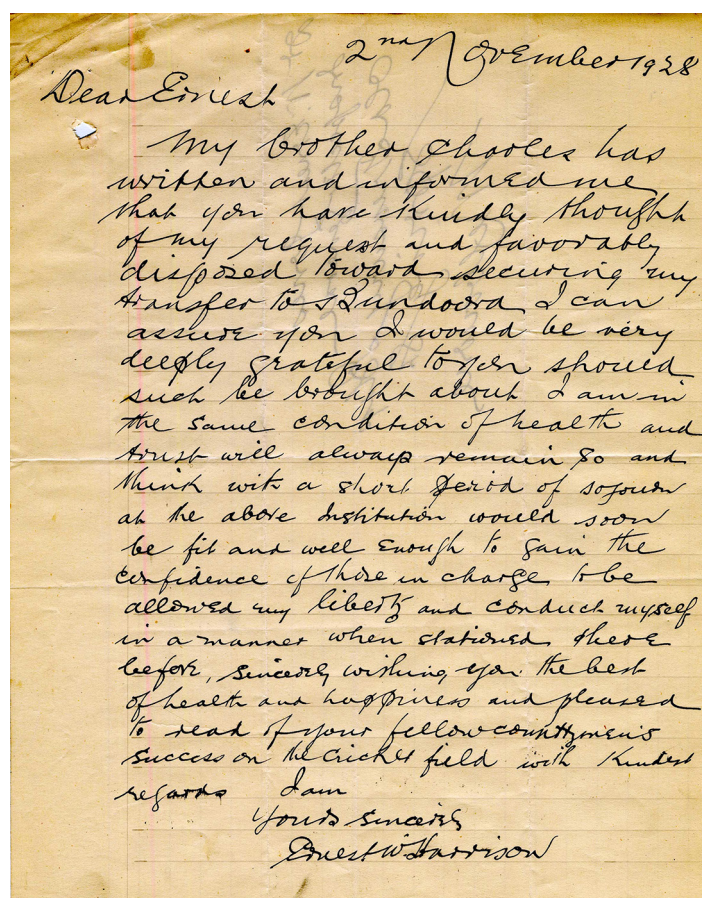 2nd November 1928
Dear Ernest
My brother Charles has
written and informed me
that you have kindly thought
of my request and favorably
disposed toward securing my
transfer to Bundoora I can
assure you I would be very
deeply grateful to you should
such be brought about I am in
the same condition of health and
trust will always remain so and
think with a short period of sojourn
at the above Institution would soon
be fit and well enough to gain the
confidence of those in charge to be
allowed my liberty and conduct myself
in a manner when stationed there
before, sincerely wishing you the best
of health and happiness and pleased
to read of your fellow countrymen's
success on the cricket field with kindest
regards I am
Yours sincerely
Ernest W Harrison